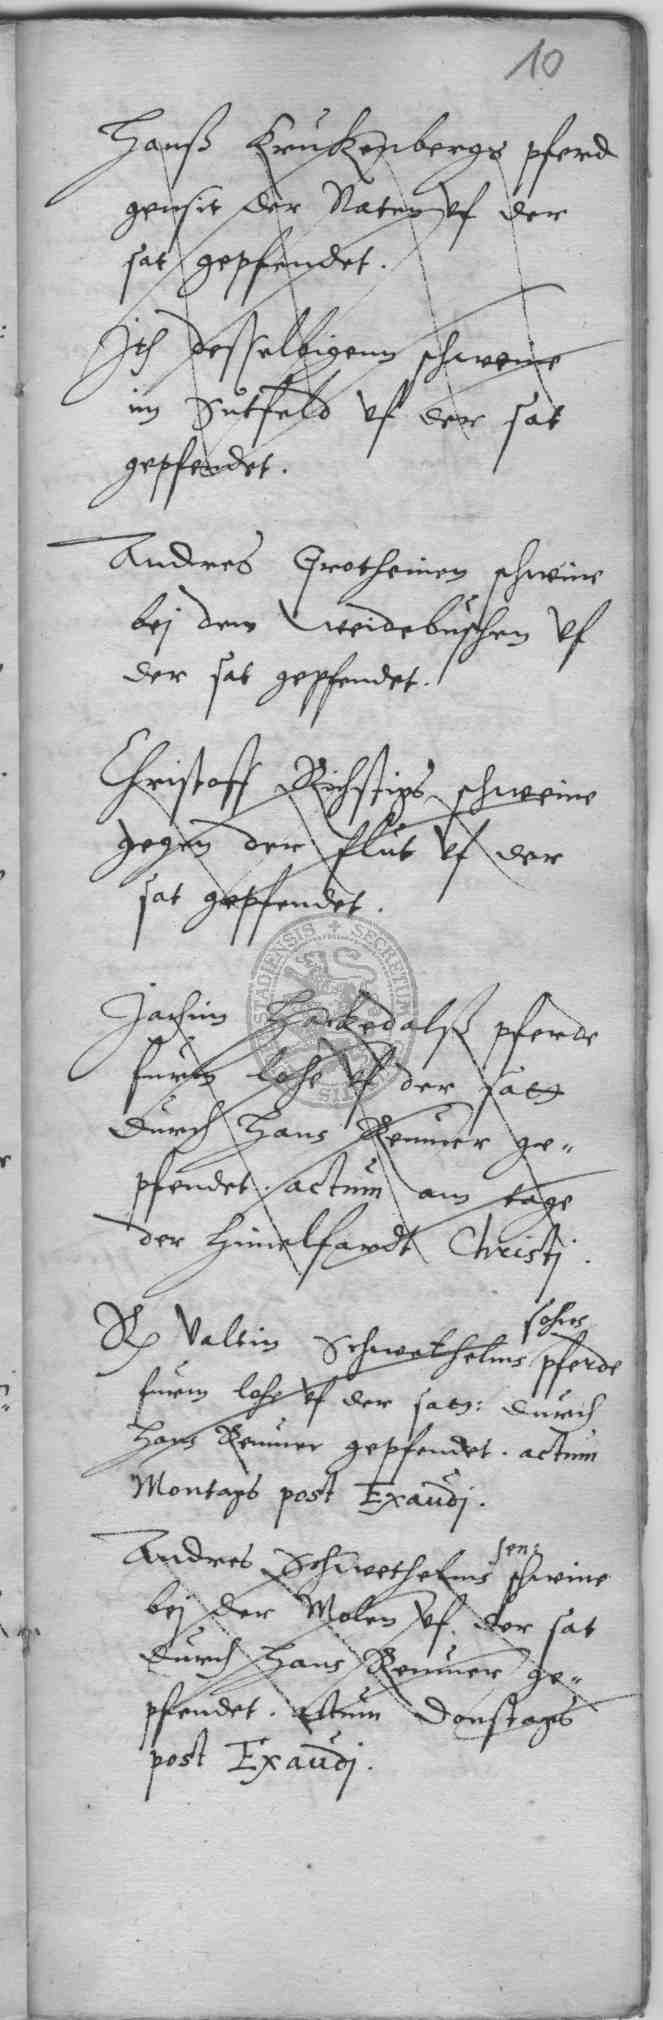 10
Hanß Krukenbergs pferd
gensit der Naten vf der
sat gepfendet.
Ith desselbigenn schweine
im Sutfeld vf der sat
gepfendet.
Andres Grotheinen schwine
bej dem weidebuschen vf
der sat gepfendet.
Christoff Richstigs schweine
gegen der flut vf der
sat gepfendet.
Jachim Harkedalß pferde
furm lohe vf der satt
durch Hans Remmer ge=
pfendet. actum am tage
der himelfardt Christj.
Valtin Schwethelms sohns pferde
furm lohe vf der satt: durch
Hans Remmer gepfendet. actum
Montags post Exaudj.
Andres Schwethelms sen: schwine
bej der Molen vf der sat
durch Hans Remmer ge=
pfendet. actum Donstags
post Exaudj.
STADIENSIS + SECRETUM